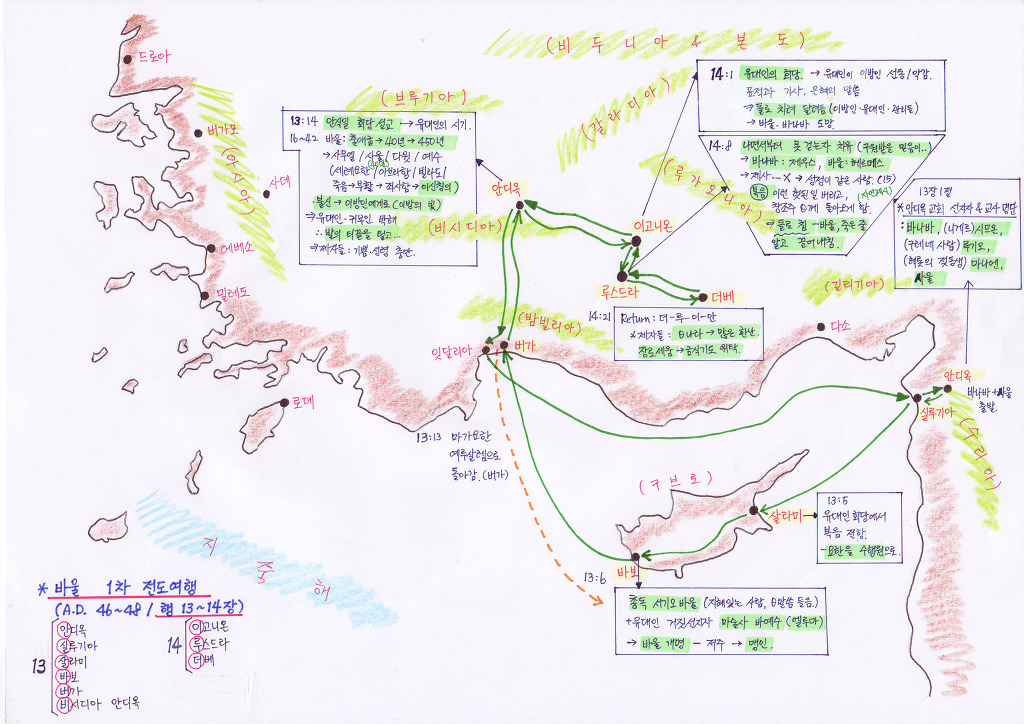 드로아
(비두니아 & 본도)
(브루기아)
(갈라디아)
버가모
(아시아)
사데
에베소
밀레도
로데
13:14 안식일 회당 설교 → 유대인의 시기.
16~42 바울: 출애굽 → 40년 → 450년
→ 사무엘 / 사울 / 다윗 / 예수
(40년)
(세례요한 / 아브라함 / 빌라도 /
죽음→부활 → 죄사함 → 이신칭의)
불신 → 이방인에게로 (이방의 빛)
⇒ 유대인·귀부인 박해
∴ 발의 티끌을 털고...
⇒ 제자들: 기쁨·성령 충만.
안디옥
(비시디아)
14:1 유대인의 회당. → 유대인이 이방인 선동/악감.
표적과 기사, 은혜의 말씀
⇒ 돌로 치려 달려듬 (이방인·유대인·관리들)
→ 바울·바나바 도망.
14:8 나면서부터 못 걷는자 치유 (구원받을 믿음이..)
→ 바나바: 제우스, 바울: 헤르메스
→ 제사… X → 성정이 같은 사람. (15)
복음 이런 헛된일 버리고,
창조주 하나께 돌아오게 함.
⇒ 돌로 침 → 바울, 죽은 줄
알고 끌어내침.
(루가오니아)
이고니온
루스드라
더베
14:21 Return: 더-루-이-안
* 제자들: 하나라 → 많은 환난
장로세움 → 금식기도 위탁.
13장 1절
* 안디옥 교회 선지자 & 교사 명단
: 바나바, (니게르) 시므온,
(구레네 사람) 루기오,
(헤롯의 젖동생) 마나엔,
사울
(길리기아)
다소
(밤빌리아)
앗달리아
버가
안디옥
바나바 + 사울
출발.
실루기아
(수리아)
13:13 마가요한
예루살렘으로
돌아감. (버가)
(구브로)
살라미
13:5
유대인 회당에서
복음 전함.
- 요한을 수행원으로.
바보
13:6
총독 서기오 바울 (지혜있는 사람, 하말씀 들음.)
+ 유대인 거짓선지자 마술사 바예수 (엘루마)
→ 바울 개명 - 저주 → 맹인.
지중해
* 바울 1차 전도여행
(A.D. 46~48 / 행 13~14장)
13
안디옥
실루기아
살라미
바보
버가
비시디아 안디옥
14
이고니온
루스드라
더베